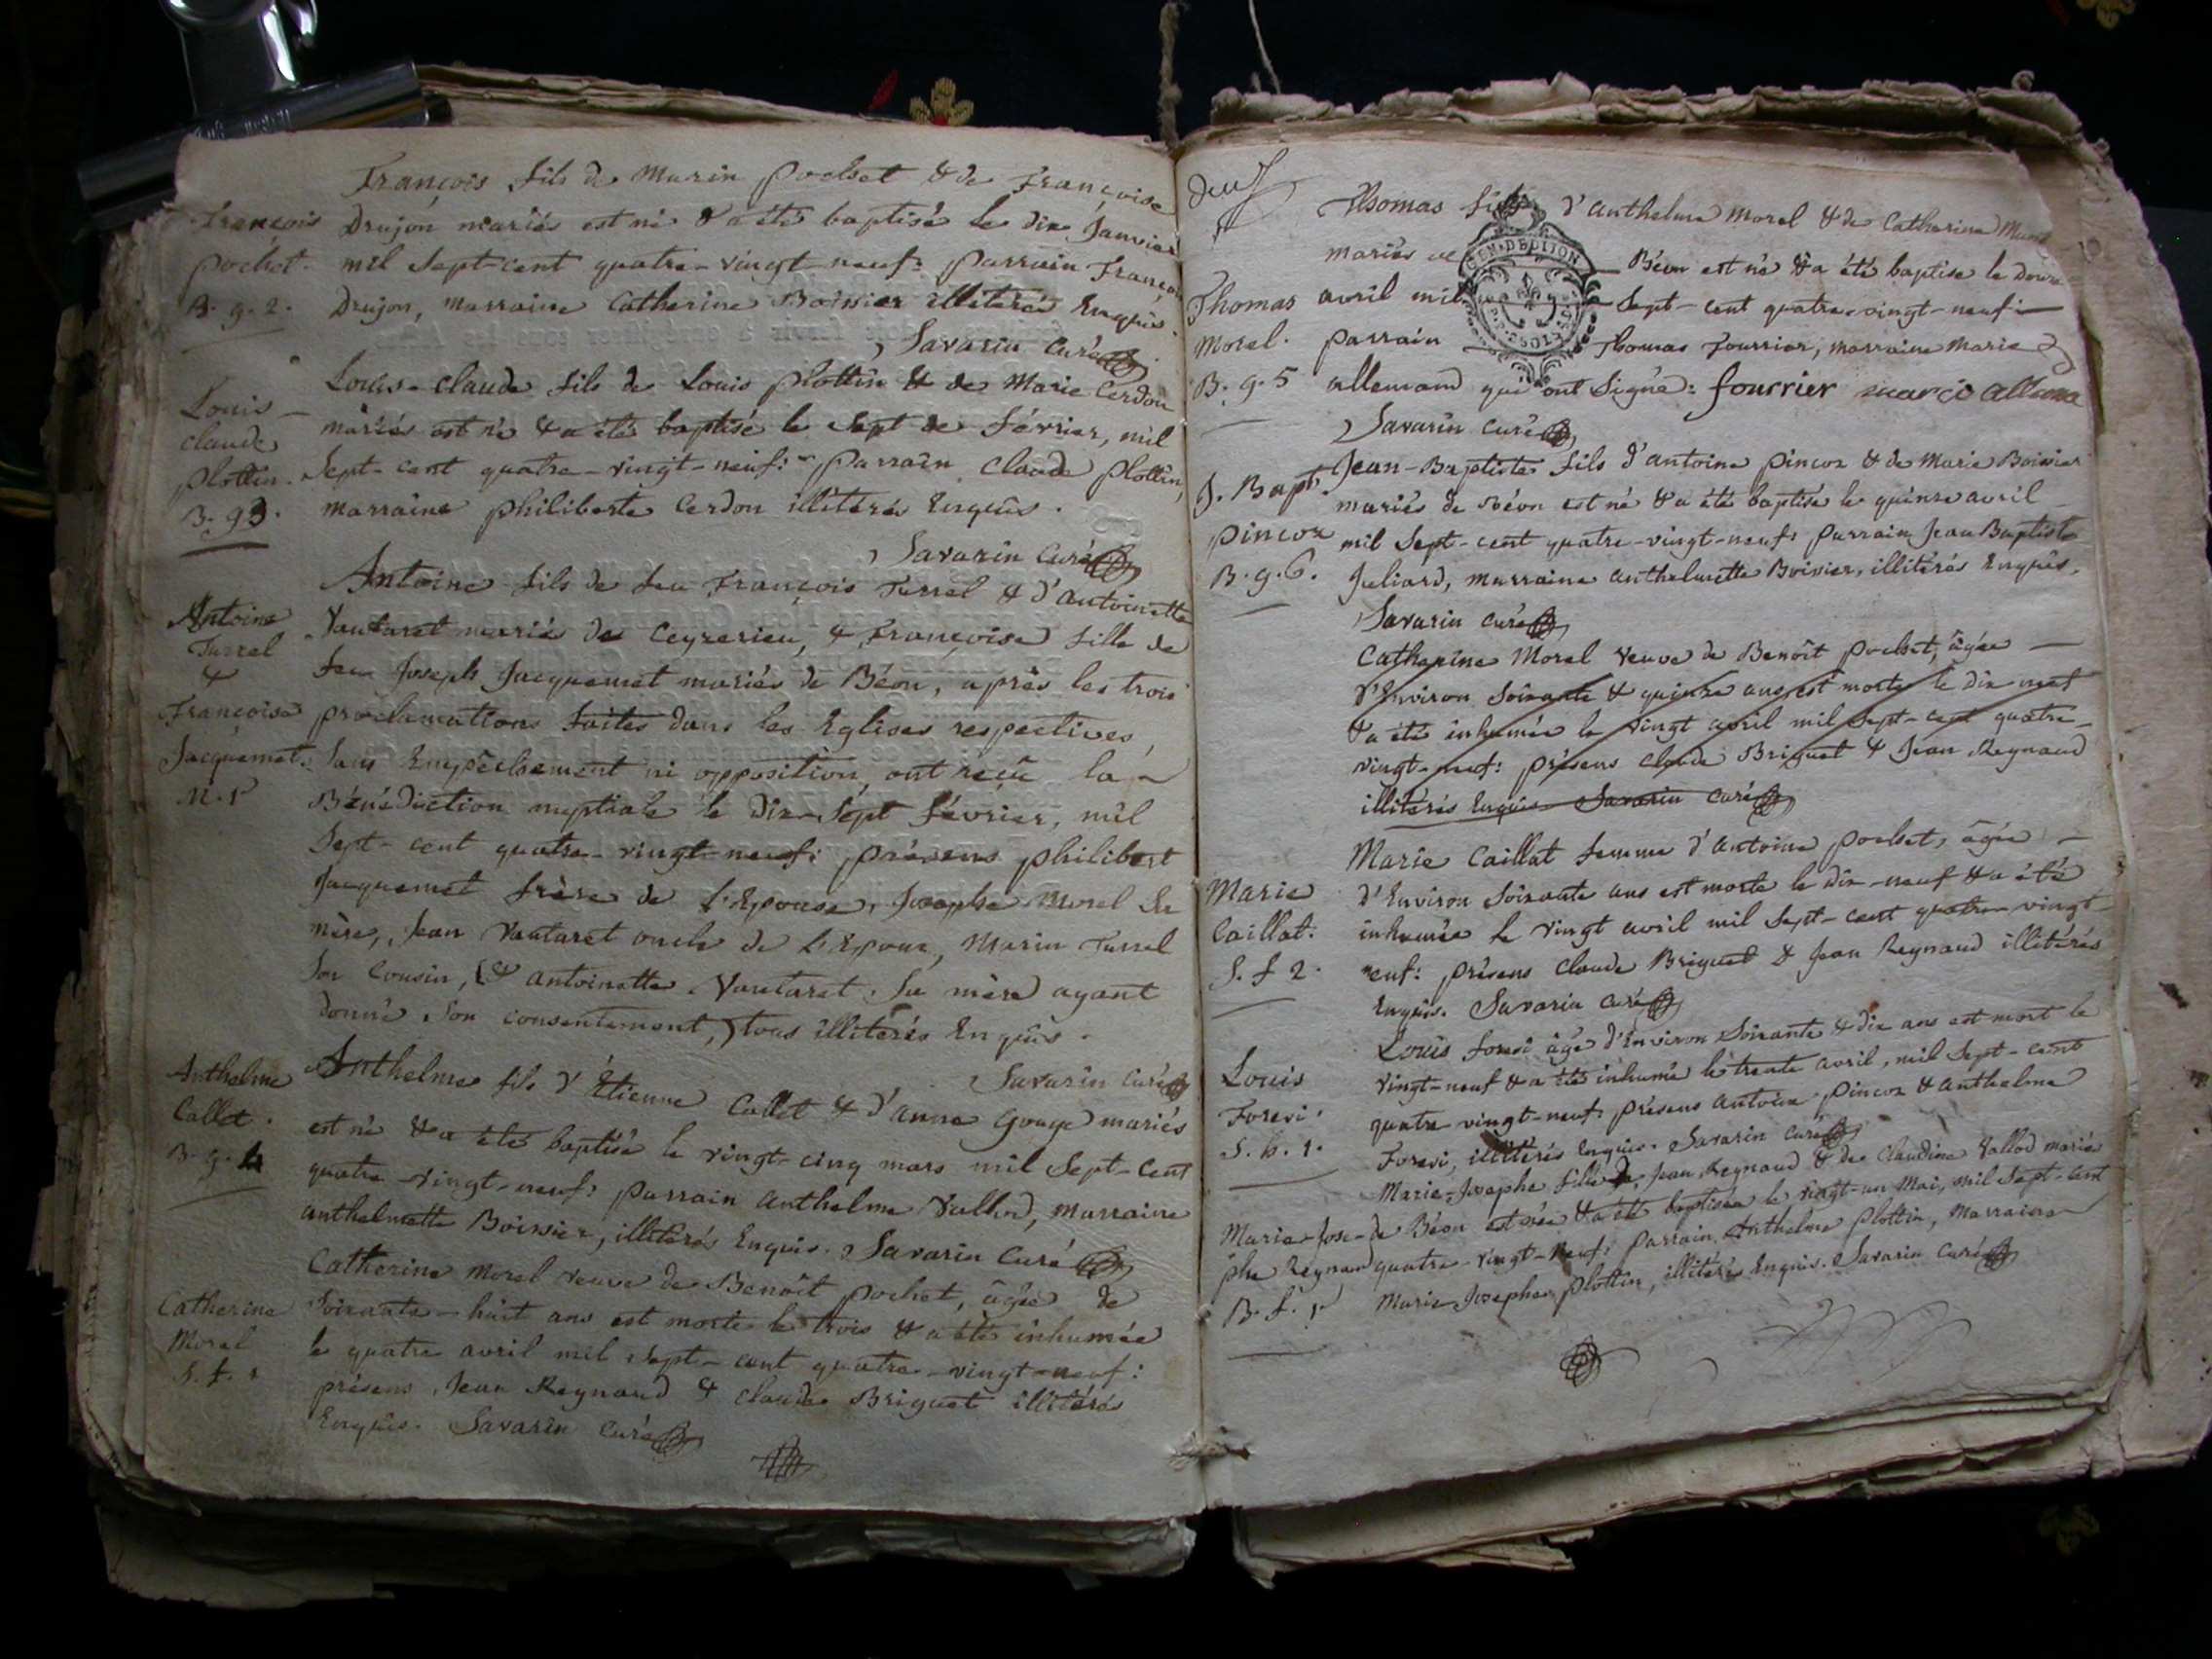 François fils de Marin pochet & de Françoise
François Drujon mariés est né & a été baptisé le dix Janvier
pochet. mil Sept-cent quatre-vingt-neuf: parrain François
B. g. 2. Drujon, marraine Catherine Boissier illitérés Enquis.
Savarin Curé
Louis-claude fils de Louis plottin & de Marie Cerdon
Louis- mariés est né & a été baptisé le Sept de février, mil
claude Sept-cent quatre-vingt-neuf: parrain claude plottin,
plottin. marraine philiberte Cerdon illitérés Enquis.
B. g 3.
Savarin Curé
Antoine fils de feu François Turrel & d'antoinette
Antoine Vautaret mariés de Ceyzerieu, & françoise fille de
Turrel feu Joseph Jacquemet mariés de Béon, après les trois
&
Françoise proclamations faites dans les Eglises respectives,
Jacquemet. Sans Empêchement ni opposition, ont reçû la
M. 1 Bénédiction nuptiale le Dix-Sept février, mil
Sept-cent quatre-vingt-neuf: présens philibert
Jacquemet frère de l'Epouse, Josephe Morel Sa
mère, Jean Vautaret oncle de l'Epoux, Marin Turrel
Son Cousin, (& antoinette Vautaret Sa mère ayant
donné Son consentement,) tous illitérés Enquis.
Savarin Curé
Anthelme Anthelme fils d'Étienne Callet & d'anne Gouge mariés
Callet. est né & a été baptisé le vingt-cinq mars mil Sept-Cent
B. g. 4 quatre-vingt-neuf: parrain anthelme Vallod, marraine
anthelmette Boissier, illitérés Enquis. Savarin Curé
Catherine Morel veuve de Benoît pochet, âgée de
Catherine Soixante-huit ans est morte le trois & a été inhumée
Morel le quatre avril mil Sept-cent quatre-vingt-neuf:
S. f. 1 présens Jean Reynaud & claude Briguet illitérés
Enquis. Savarin Curé
deux
Thomas fils d'anthelme Morel & de Catherine
mariés de Béon est né & a été baptisé le douze
GEN. DE DIJON
Thomas avril mil Sept-cent quatre-vingt-neuf:
Morel. parrain Thomas Fourrier, marraine Marie
B. g. 5 allemand qui ont Signé: fourrier marie
Savarin Curé
J. Bapt. Jean-Baptiste fils d'antoine pincoz & de Marie Boissier
mariés de Béon est né & a été baptisé le quinze avril
pincoz mil Sept-cent quatre-vingt-neuf: parrain Jean Baptiste
B. g. 6. Juliard, marraine anthelmette Boissier, illitérés Enquis.
Savarin Curé
Catherine Morel veuve de Benoît pochet, âgée
d'Environ Soixante & quinze ans est morte le dix neuf
& a été inhumée le vingt avril mil Sept-cent quatre-
vingt-neuf: présens claude Briguet & Jean Reynaud
illitérés Enquis Savarin Curé
Marie Caillat femme d'antoine pochet, âgée
Marie d'Environ Soixante ans est morte le dix-neuf & a été
Caillat. inhumée le vingt avril mil Sept-cent quatre-vingt-
S. f 2. neuf: présens claude Briguet & Jean Reynaud illitérés
Enquis. Savarin Curé
Louis foresi âgé d'Environ Soixante & dix ans est mort le
Louis vingt-neuf & a été inhumé le trente avril, mil Sept-cent
Foresi. quatre vingt-neuf: présens antoine pincoz & anthelme
S. h. 1. Foresi, illitérés Enquis. Savarin Curé
Marie-Josephe fille de Jean Reynaud & de Claudine Vallod mariés
Marie-Jose- de Béon est née & a été baptisée le vingt-un Mai, mil Sept-cent
phe Reynaud quatre-vingt-neuf: parrain Anthelme plottin, marraine
B. f. 1 Marie Josephe plottin, illitérés Enquis. Savarin Curé